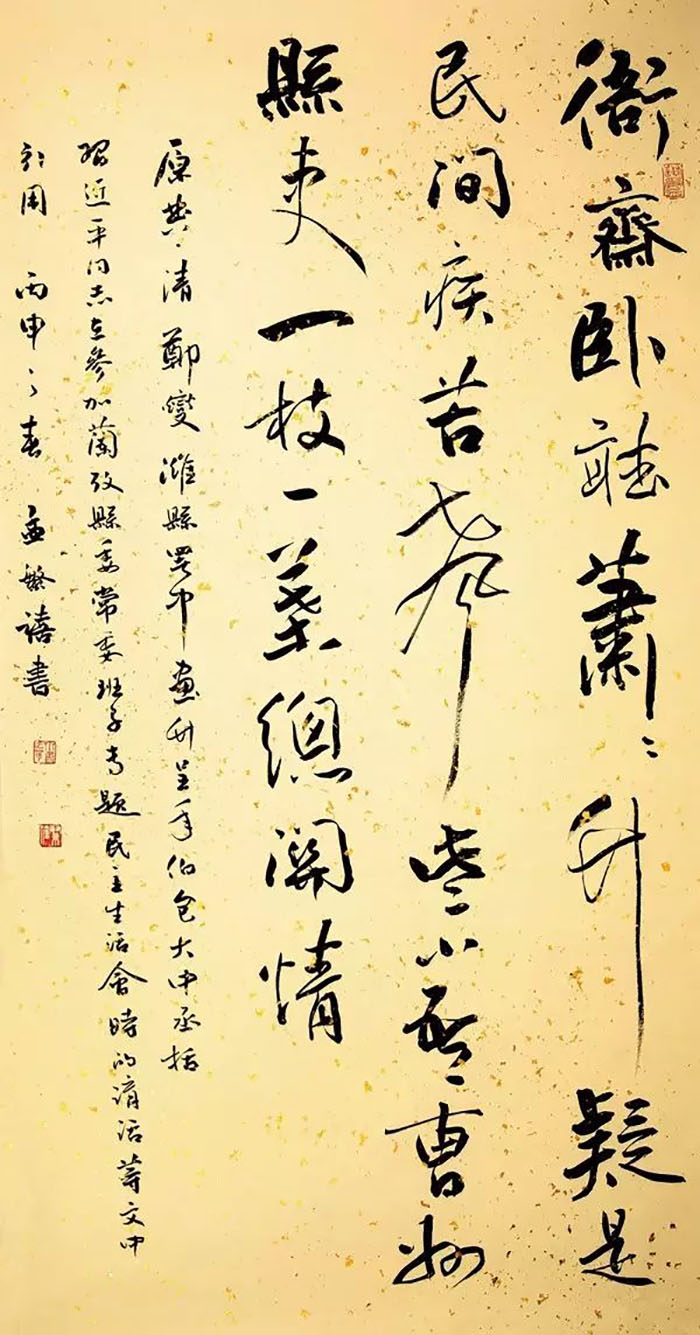 衙齋卧聽蕭々竹疑是
民間疾苦聲些小吾曹州
縣吏一枝一葉總關情
原典清鄭燮濰縣署中畫竹呈年伯包大中丞括
習近平同志在參加蘭考縣委常委班子專題民主生活會時的講話等文中
引用 丙申之春 孟繁禧書